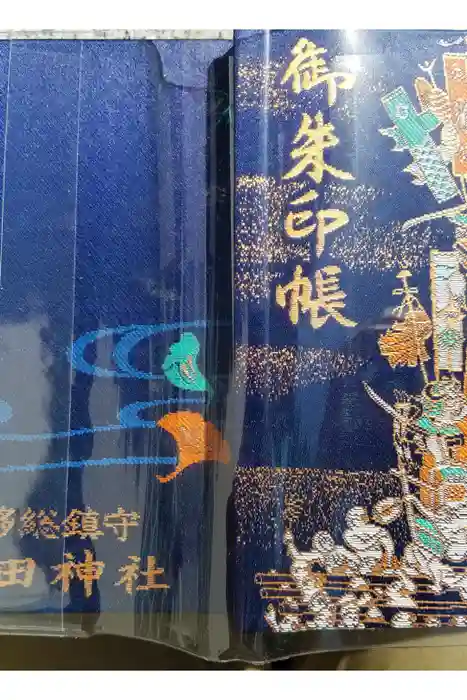 御朱印帳
総鎮守
田神社